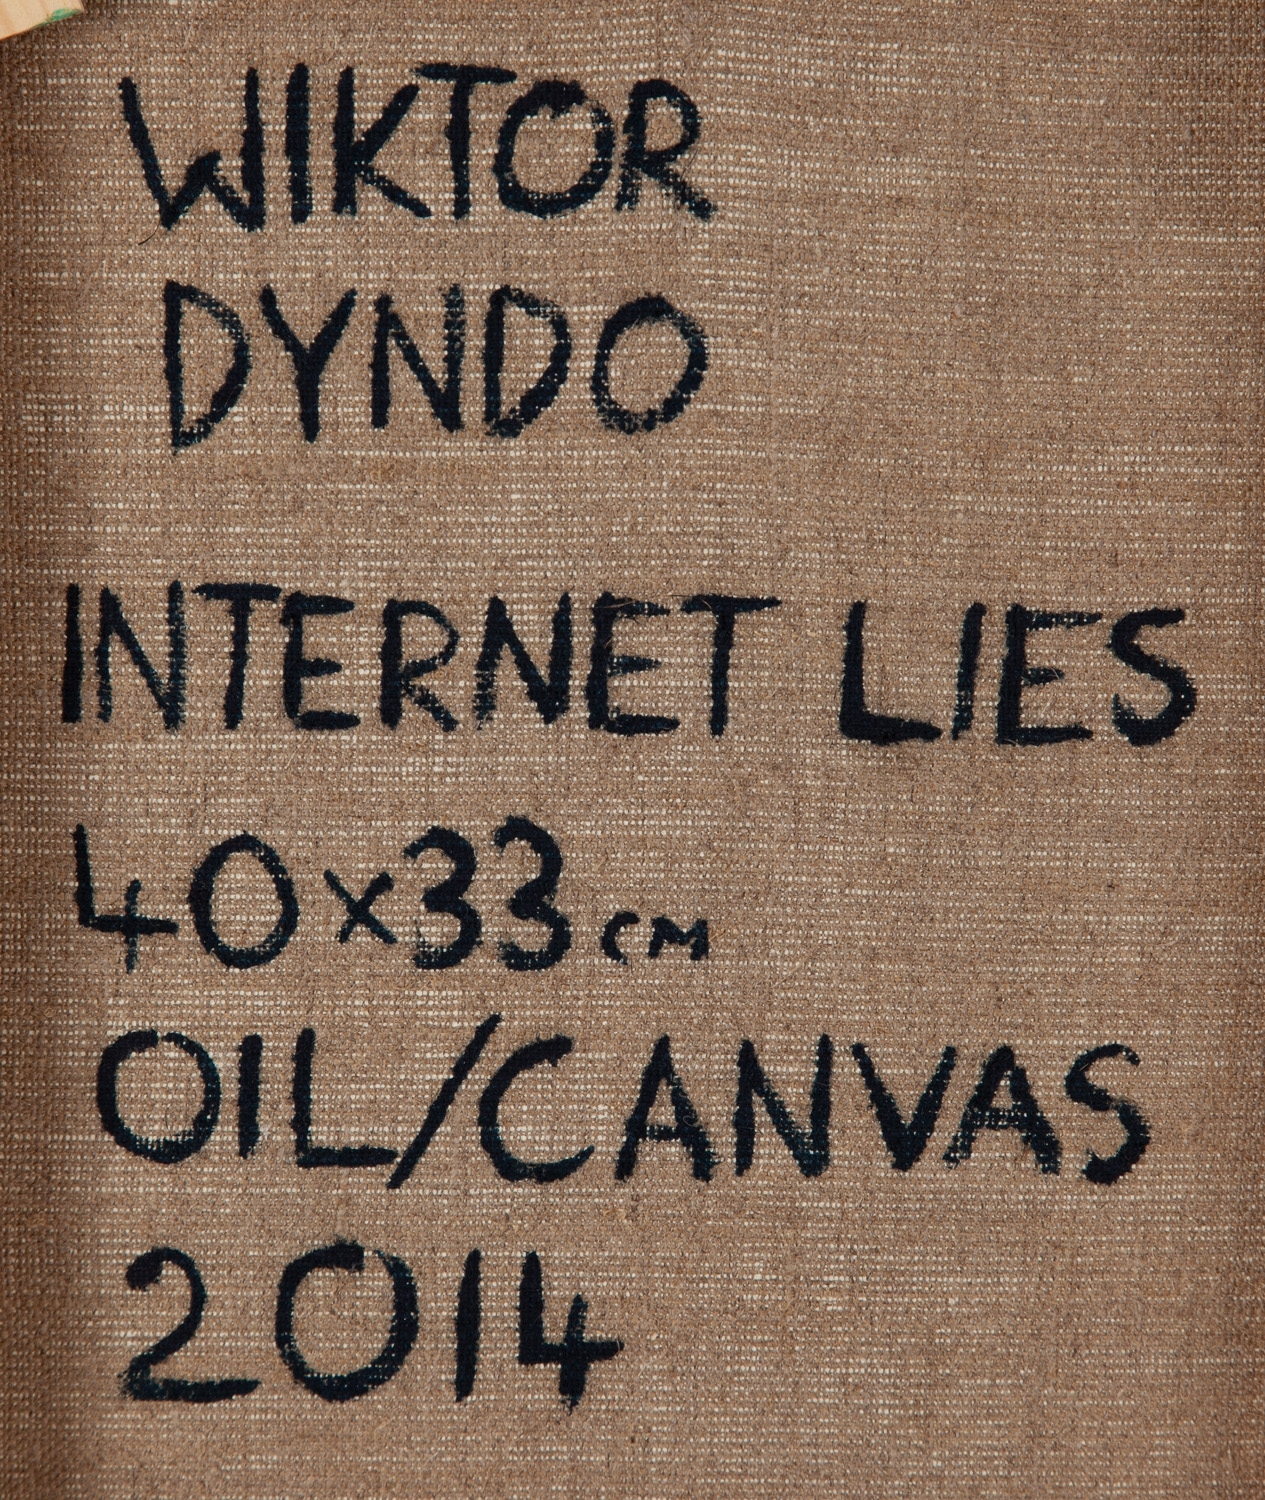 WIKTOR
DYNDO
INTERNET LIES
40x33 cm
OIL/CANVAS
2014